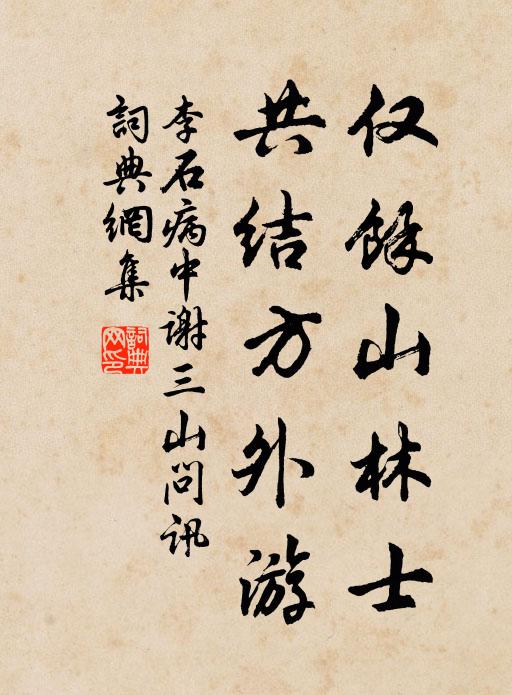 仅餘山林士
共结方外游
李石病中谢三山問讯
詞典網集
詞典网印